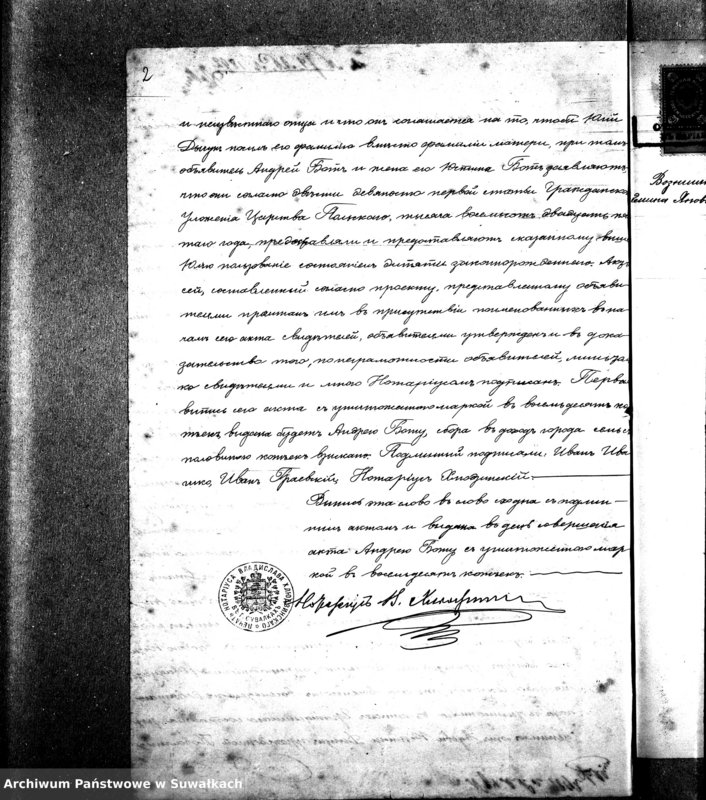 2
и неизвѣстнаго отца и что онъ соглашается на то, чтобы Юлій
носилъ его фамилію вмѣсто фамиліи матери, при томъ
объявители Андрей Ботъ и жена его Юстина Ботъ заявляютъ,
что они согласно двѣсти девяносто первой статьи Гражданскаго
Уложенія Царства Польскаго, тысяча восемьсотъ двадцать пя-
таго года, предоставляли и предоставляютъ сказанному выше
Юлію пользованіе состояніемъ дитяти законнорожденнаго. Актъ
сей, составленный согласно проекту, представленному объяви-
телями прочитанъ имъ въ присутствіи поименованныхъ въ на-
чалѣ сего акта свидѣтелей, объявителями утвержденъ и въ дока-
зательство того, по неграмотности объявителей, лишь
свидѣтелями и мною Нотаріусомъ подписанъ. Первая
выпись сего акта съ уничтоженною маркой въ восемьдесятъ ко-
пѣекъ выдана будетъ Андрею Боту, сбора въ доходъ города семь съ
половиною копѣекъ взыскано. Подлинный подписали: Иванъ
Иванъ Граевскій, Нотаріусъ Хлодзинскій.
Выпись эта слово въ слово сходна съ подлин-
нымъ актомъ и выдана въ день совершенія
акта Андрею Боту съ уничтоженною мар-
кой въ восемьдесятъ копѣекъ.
Нотаріусъ В.
ПЕЧАТЬ НОТАРІУСА ВЛАДИСЛАВА
ВЪ Г. СУВАЛКАХЪ
Archiwum Państwowe w Suwałkach